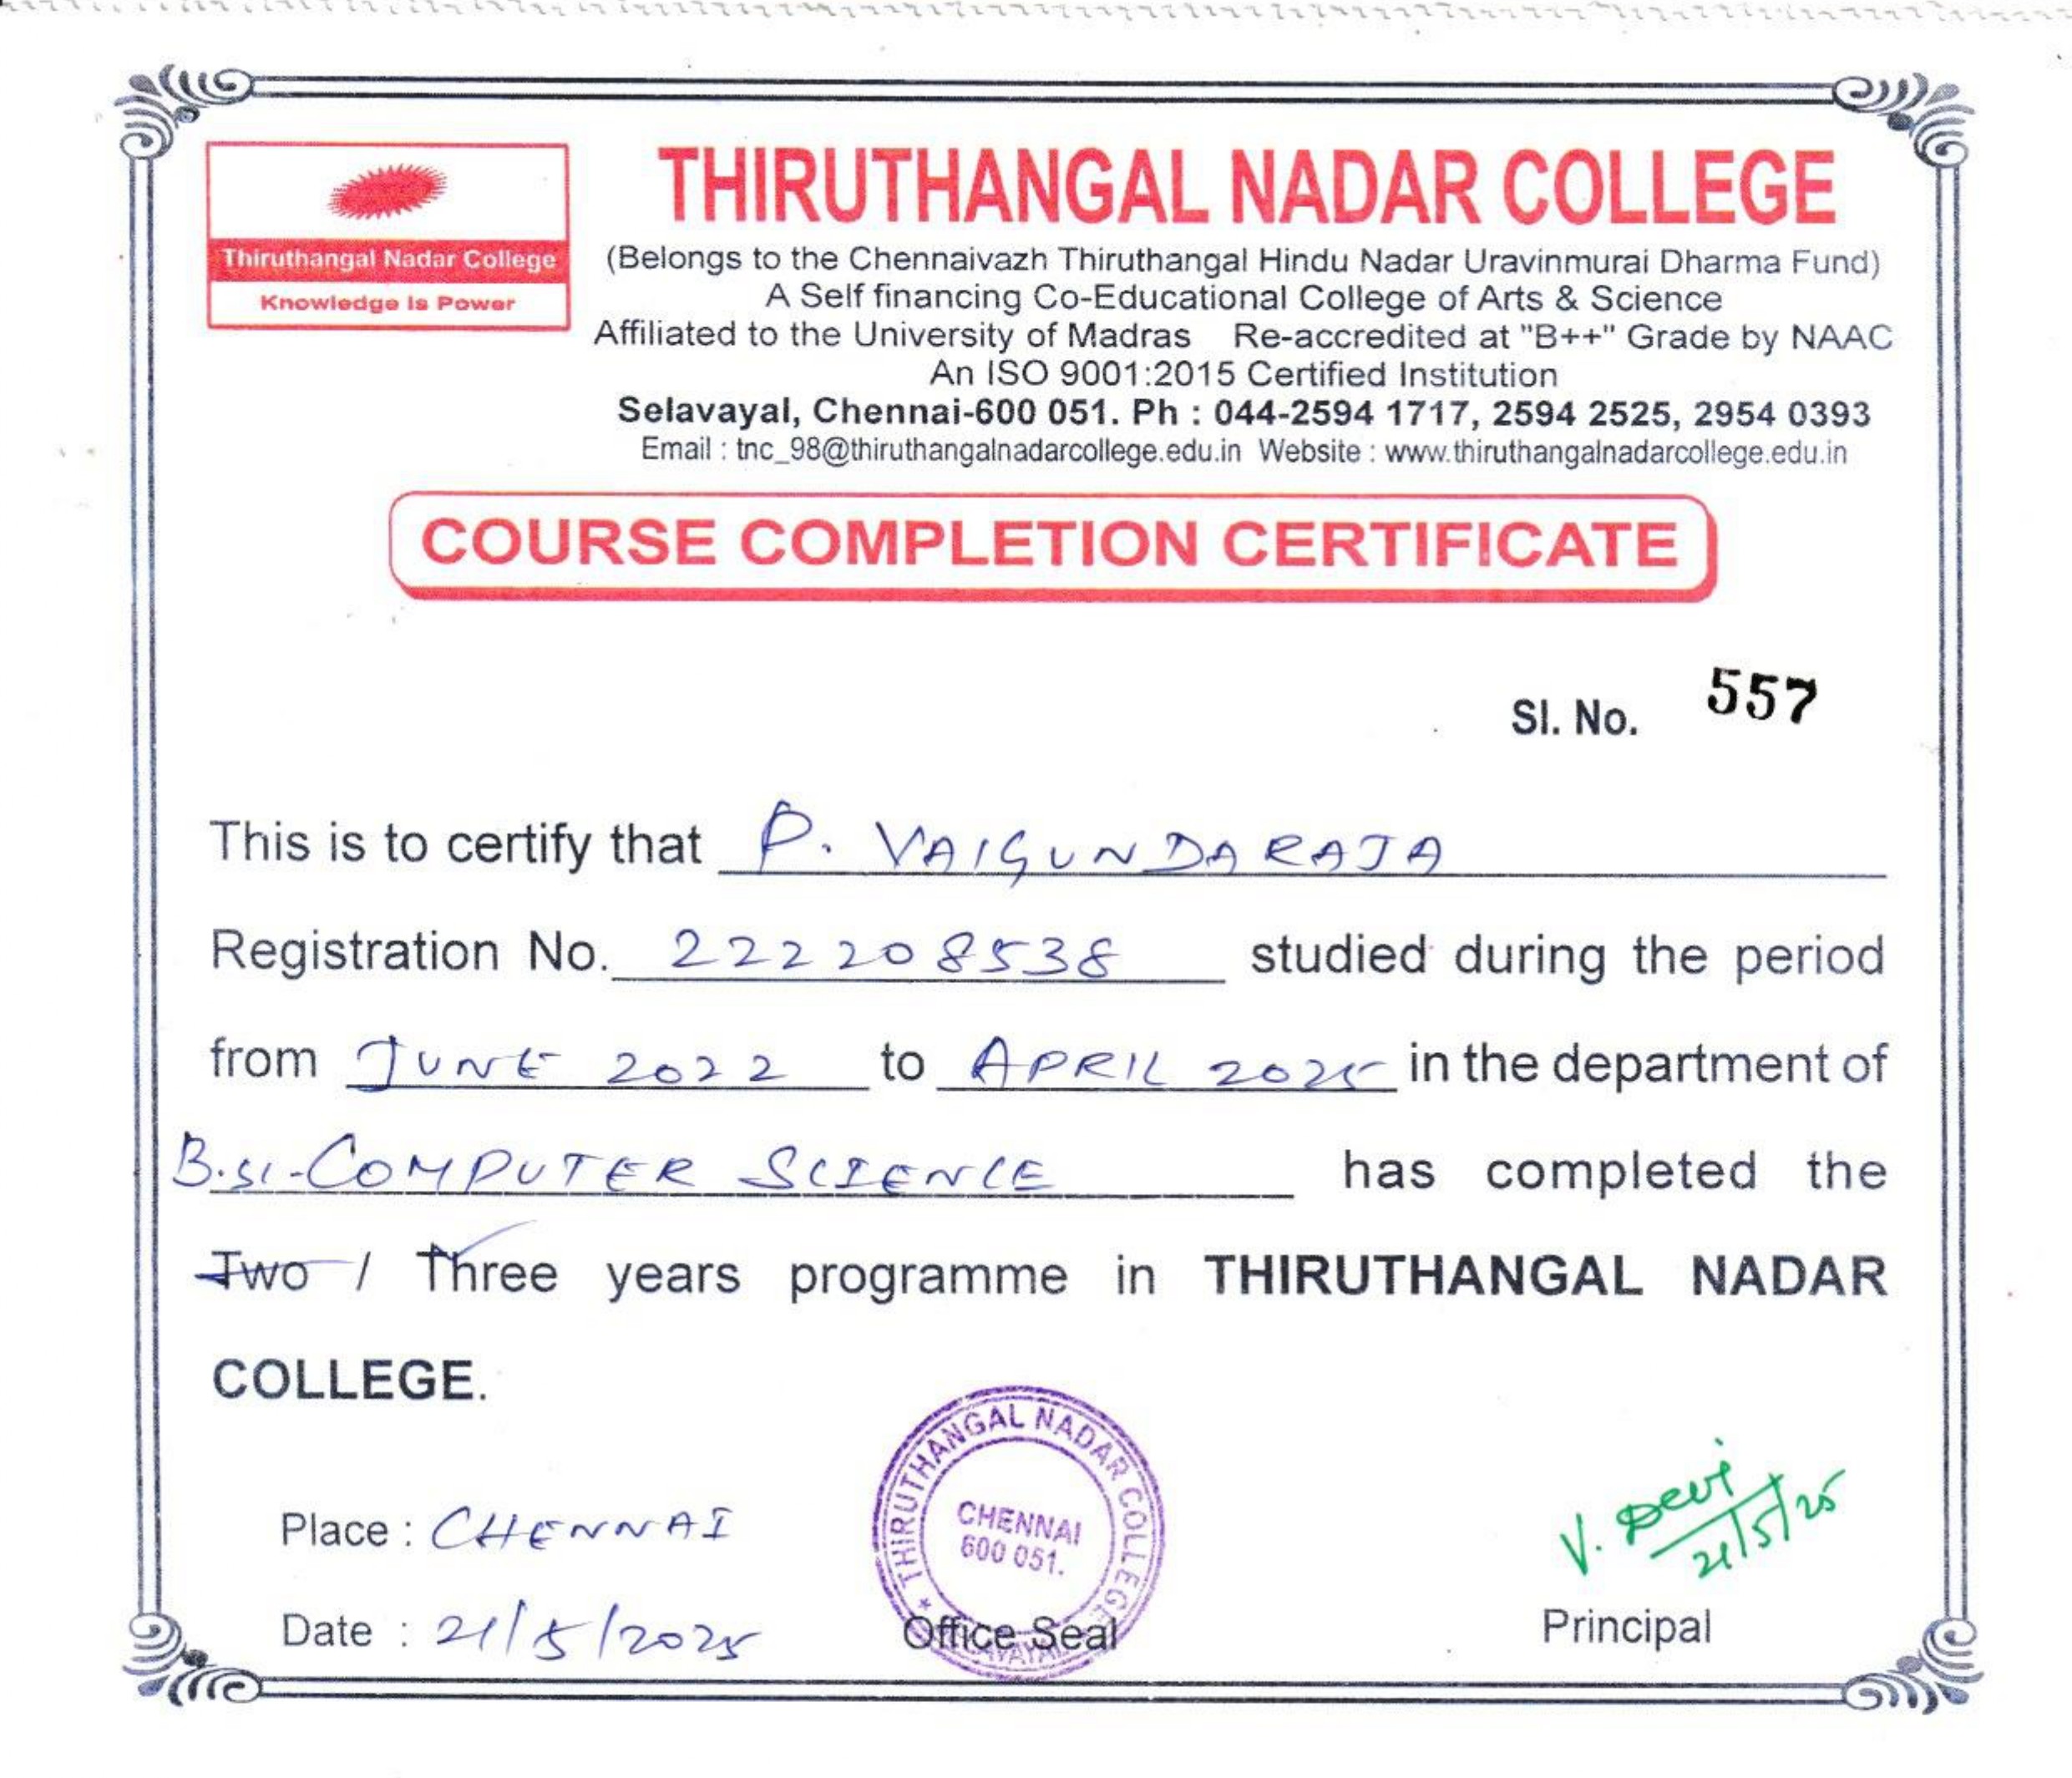 Thiruthangal Nadar College
Knowledge Is Power
THIRUTHANGAL NADAR COLLEGE
(Belongs to the Chennaivazh Thiruthangal Hindu Nadar Uravinmurai Dharma Fund)
A Self financing Co-Educational College of Arts & Science
Affiliated to the University of Madras Re-accredited at "B++" Grade by NAAC
An ISO 9001:2015 Certified Institution
Selavayal, Chennai-600 051. Ph : 044-2594 1717, 2594 2525, 2954 0393
Email : tnc_98@thiruthangalnadarcollege.edu.in Website : www.thiruthangalnadarcollege.edu.in
COURSE COMPLETION CERTIFICATE
Sl. No. 557
This is to certify that P. VAIGUNDARAJA
Registration No. 222208538 studied during the period
from JUNE 2022 to APRIL 2025 in the department of
B.Sc-COMPUTER SCIENCE has completed the
Two / Three years programme in THIRUTHANGAL NADAR
COLLEGE.
THIRUTHANGAL NADAR COLLEGE
CHENNAI
600 051.
V. Devi
21/5/25
Place : CHENNAI
Date : 21/5/2025
Office Seal
Principal